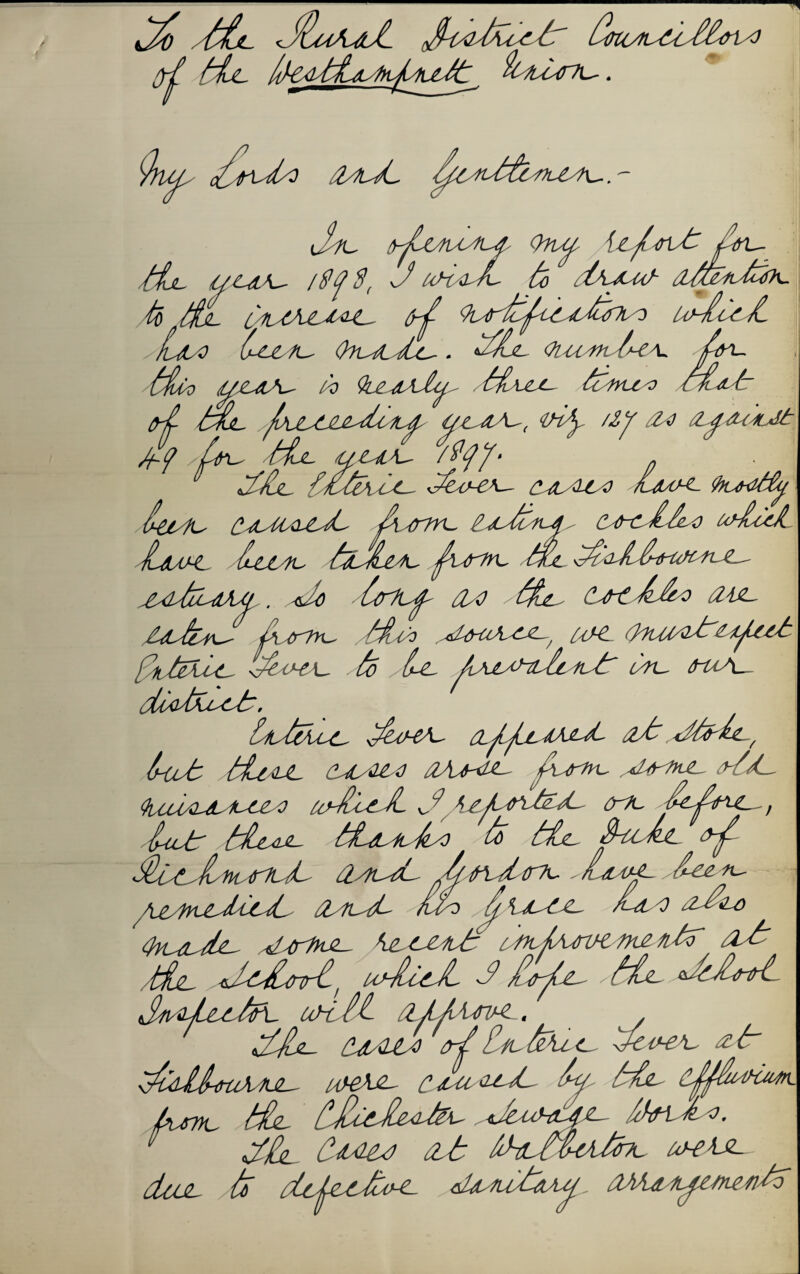 To the Rural District Councillors
of the Westhampnett Union.
My Lords and Gentlemen.-
In opening my report for
the year 1898, I wish to draw attention
to the increase of notifications which
has been made. The number for
this year is nearly three times that
of the preceeding year, viz 127 as against
49 for the year 1897.
The Enteric Fever cases have mostly
been caused from eating cockles which
have been taken from the Fishbourne
estuary. So long as the cockles are
eaten from this source, we must expect
Enteric Fever to be prevalent in our
district.
Enteric Fever appeared at Stoke,
but these cases arose from some old
nuisances which I reported on before,
but these thanks to the Duke of
Richmond and Gordon have been
remedied and his Grace has also
made some recent improvements at
the School, which I hope the School
Inspector will approve.
The cases of Enteric Fever at
Fishbourne were caused by the effluvium
from the Chichester Sewage Works.
The Cases at Walberton were
due to defective sanitary arrangements